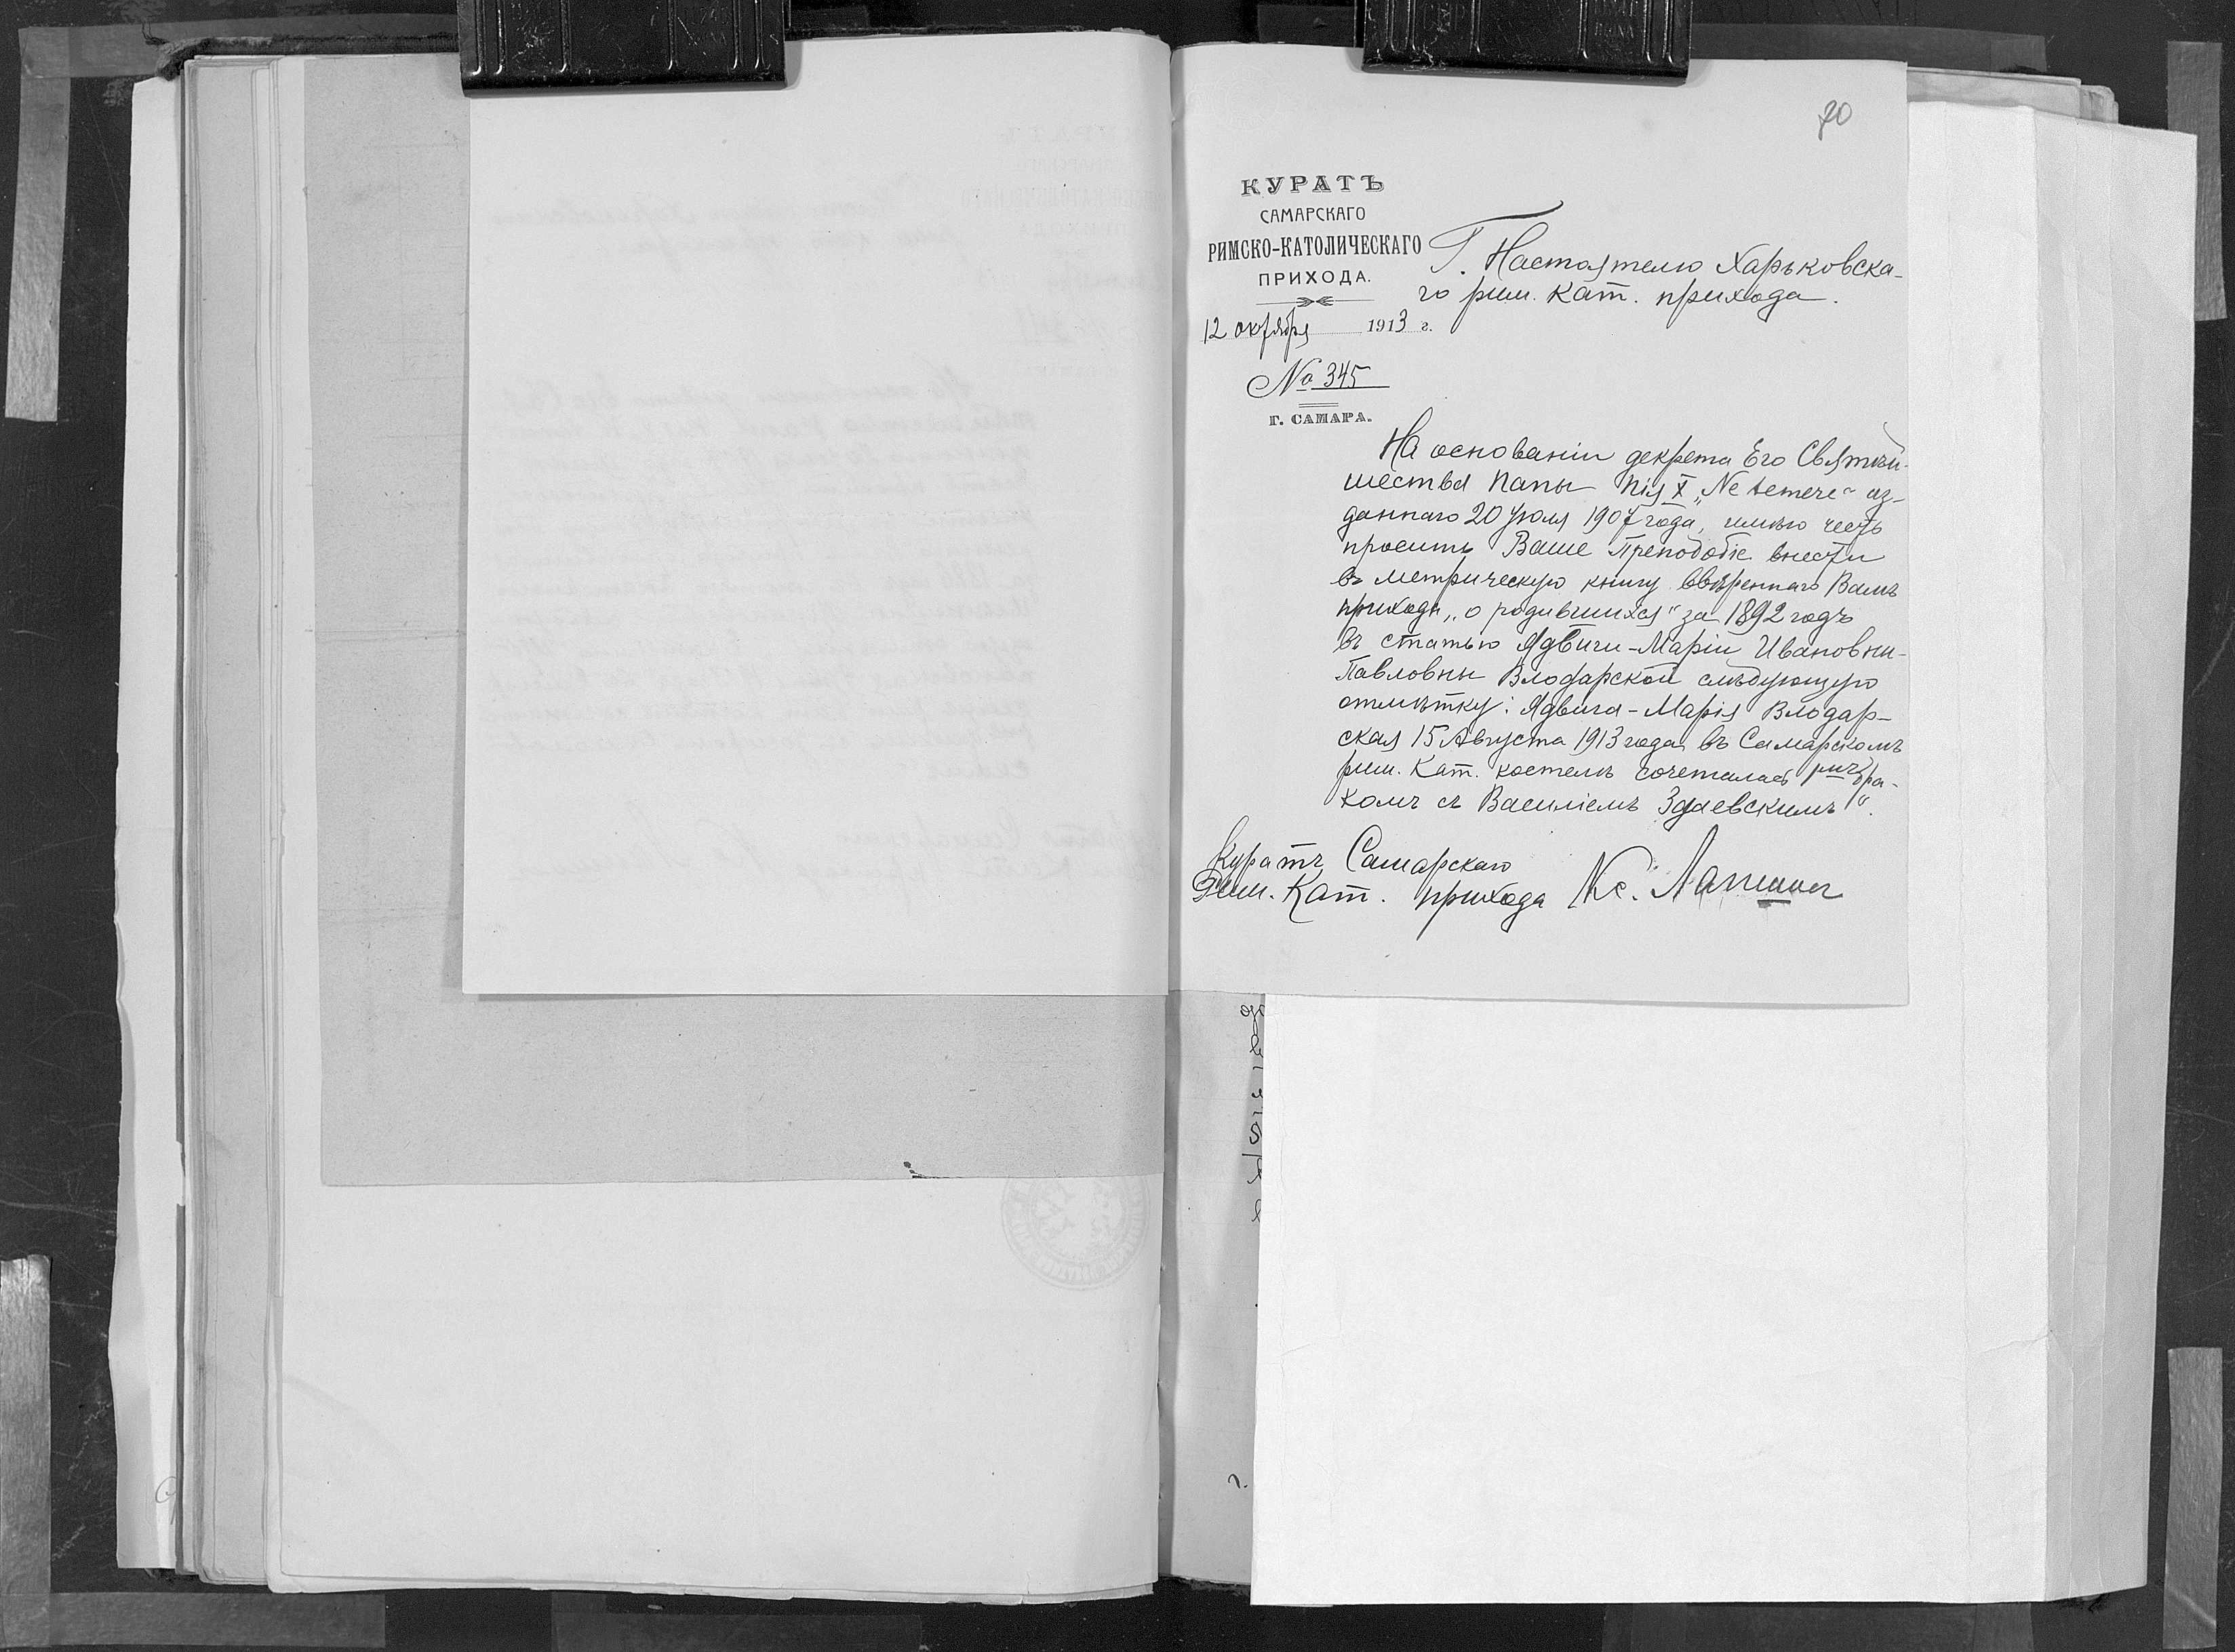 70
КУРАТЪ
САМАРСКАГО
РИМСКО-КАТОЛИЧЕСКАГО
ПРИХОДА.
12 октября 1913 г.
№ 345
Г. САМАРА.
Г. Настоятелю Харьковска-
го рим. кат. прихода.
На основаніи декрета Его Святѣй-
шества Папы Пія X „Ne temere“ из-
даннаго 20 Іюля 1907 года, имѣю честь
просить Ваше Преподобіе внести
въ метрическую книгу ввѣреннаго Вамъ
прихода „о родившихся“ за 1892 годъ
въ статью Ядвиги-Маріи Ивановны-
Павловны Влодарской слѣдующую
отмѣтку: Ядвига-Марія Влодар-
ская 15 Августа 1913 года въ Самарскомъ
рим. кат. костелѣ сочеталась бра-
комъ съ Василіемъ Здаевскимъ“.
Куратъ Самарскаго
Рим. Кат. прихода Кс.